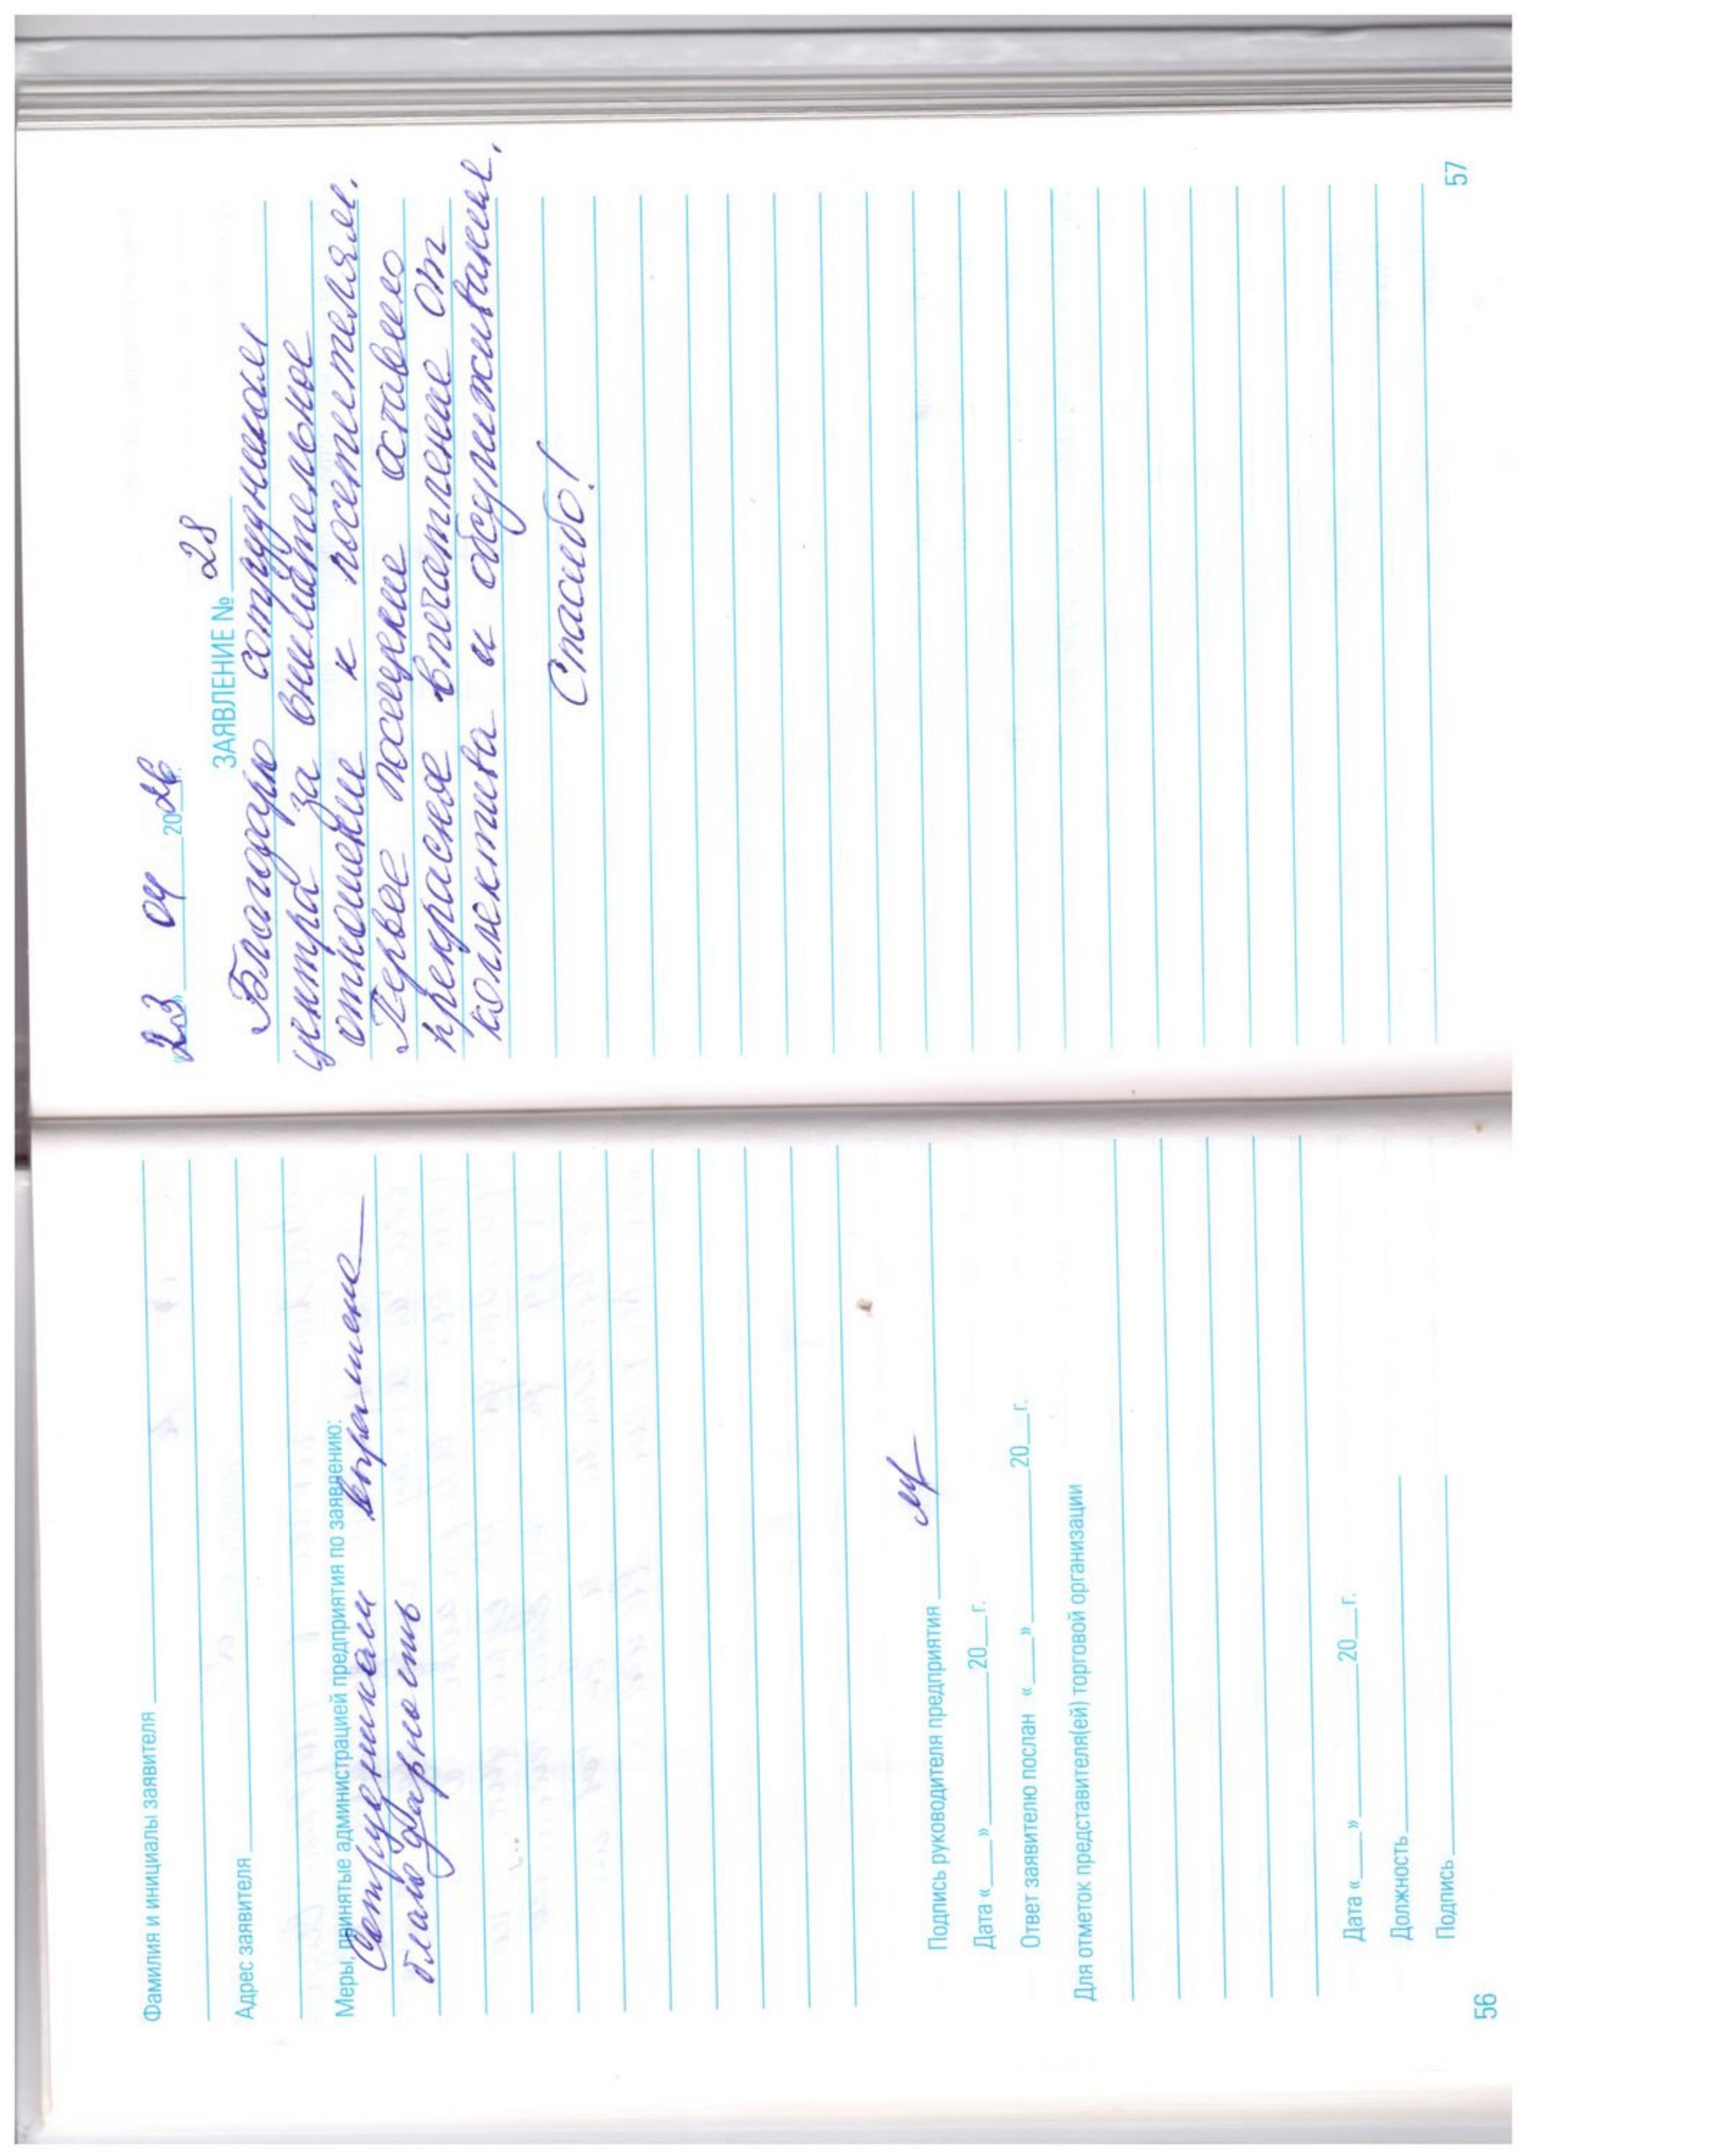 Фамилия и инициалы заявителя
Адрес заявителя
Меры, принятые администрацией предприятия по заявлению:
Сотрудникам выражена
благодарность
Подпись руководителя предприятия
Дата «___» ________ 20__г.
Ответ заявителю послан «___» ________ 20__г.
Для отметок представителя(ей) торговой организации
Дата «___» ________ 20__г.
Должность
Подпись
56
«23» 04 2026
ЗАЯВЛЕНИЕ № 28
Благодарю сотрудников
центра за внимательное
отношение к посетителям.
Первое посещение оставило
прекрасное впечатление от
коллектива и обслуживания.
Спасибо!
57